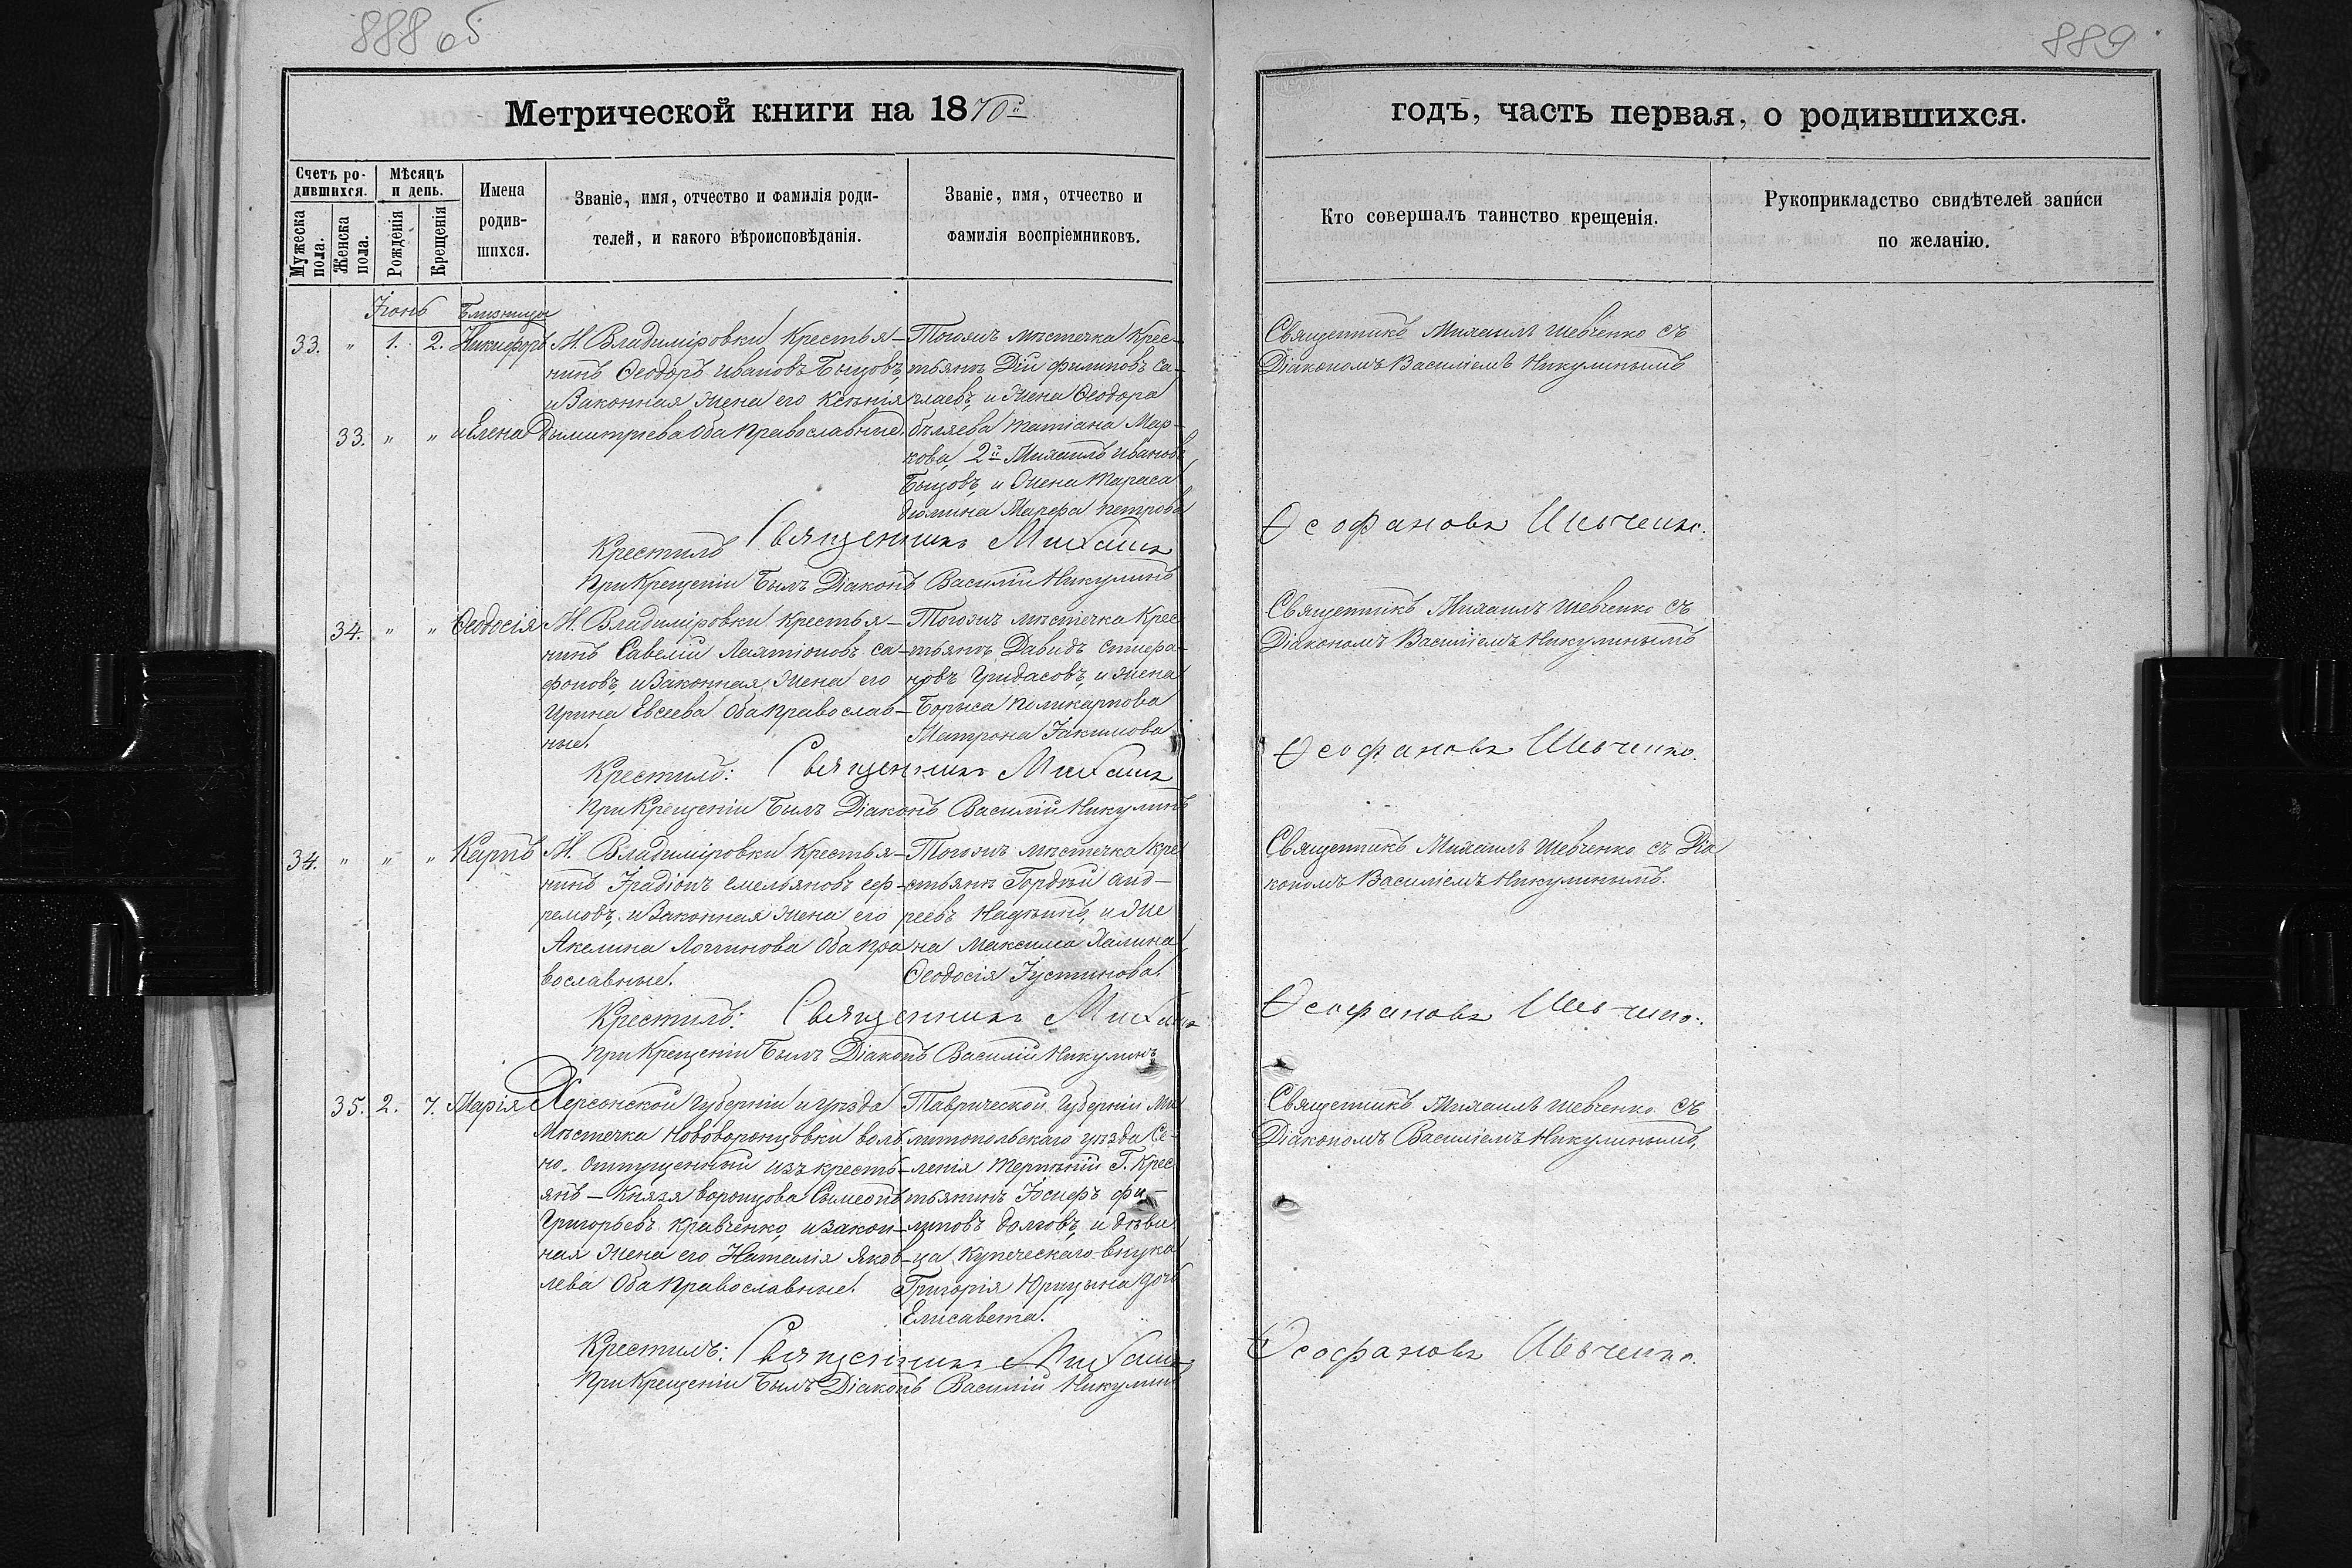 888 об
889
Метрической книги на 1870й
годъ, часть первая, о родившихся.
Счетъ ро-
дившихся.
Мѣсяцъ
и день.
Мужеска
пола.
Женска
пола.
Рожденія
Крещенія
Имена
родив-
шихся.
Званіе, имя, отчество и фамилія роди-
телей, и какого вѣроисповѣданія.
Званіе, имя, отчество и
фамилія воспріемниковъ.
Кто совершалъ таинство крещенія.
Рукоприкладство свидѣтелей записи
по желанію.
Іюнь
Близнецы
33. " 1. 2. Никифоръ
33. " " и Елена
М. Владиміровки Крестья-
нинъ Ѳеодоръ Ивановъ Быцовъ,
и Законная жена его Ксенія
Дымитріева Оба Православные.
Тогожъ мѣстечка Крес-
тьянъ Дій Филиповъ
и жена Ѳеодора
Бѣляева Татіана Мар-
кова, 2й Михаилъ Ивановъ
Быцовъ, и Жена Тараса
Дюмина Марфа Петрова
Священникъ Михаилъ Шевченко съ
Діакономъ Василіемъ Никулинымъ
Крестилъ Священникъ Михаилъ
Ѳеофановъ Шевченко.
При Крещеніи Былъ Діаконъ Василій Никулинъ
34. " " Ѳеодосія
М. Владиміровки Крестья-
нинъ Савелій Лаятіоновъ са-
фоновъ, и Законная жена его
Ирина Евсеева Оба Православ-
ные.
Тогожъ мѣстечка Крес
тьянъ Давидъ Стефа-
новъ Гридасовъ, и жена
Борыса Поликарпова
Матрона Іакимова
Священникъ Михаилъ Шевченко съ
Діакономъ Василіемъ Никулинымъ
Крестилъ: Священникъ Михаилъ
Ѳеофановъ Шевченко.
При Крещеніи Былъ Діаконъ Василій Никулинъ
34. " " " Карпъ
М. Владиміровки Крестья-
нинъ Ірадіонъ Емельяновъ Еф-
ремовъ, и Законная жена его
Акелина Логгинова Оба Пра
вославные.
Тогожъ мѣстечка кре
стьянъ Гордѣй Анд-
реевъ и же
на Максима Халина
Ѳеодосія Іустинова.
Священникъ Михаилъ Шевченко съ Діа
кономъ Василіемъ Никулинымъ.
Крестилъ: Священникъ Михаилъ
Ѳеофановъ Шевченко.
При Крещеніи Былъ Діаконъ Василій Никулинъ
35. 2. 7. Марія
Херсонской Губерніи и уѣзда
Мѣстечка Нововоронцовки воль
но-Отпущенный изъ кресть-
янъ - Князя Воронцова Сымеонъ
Григорьевъ Кравченко, и закон-
ная жена его Наталія Яков-
лева Оба Православные.
Таврической Губерніи Ме
литопольскаго уѣзда Се-
ленія Терпѣній Г. Крес
тьянинъ Іосифъ Фи-
липовъ Долговъ, и дѣви
ца Купеческаго внука
Григорія Юрицына дочь
Елисавета.
Священникъ Михаилъ Шевченко съ
Діакономъ Василіемъ Никулинымъ,
Крестилъ: Священникъ Михаилъ
Ѳеофановъ Шевченко.
При Крещеніи Былъ Діаконъ Василій Никулинъ